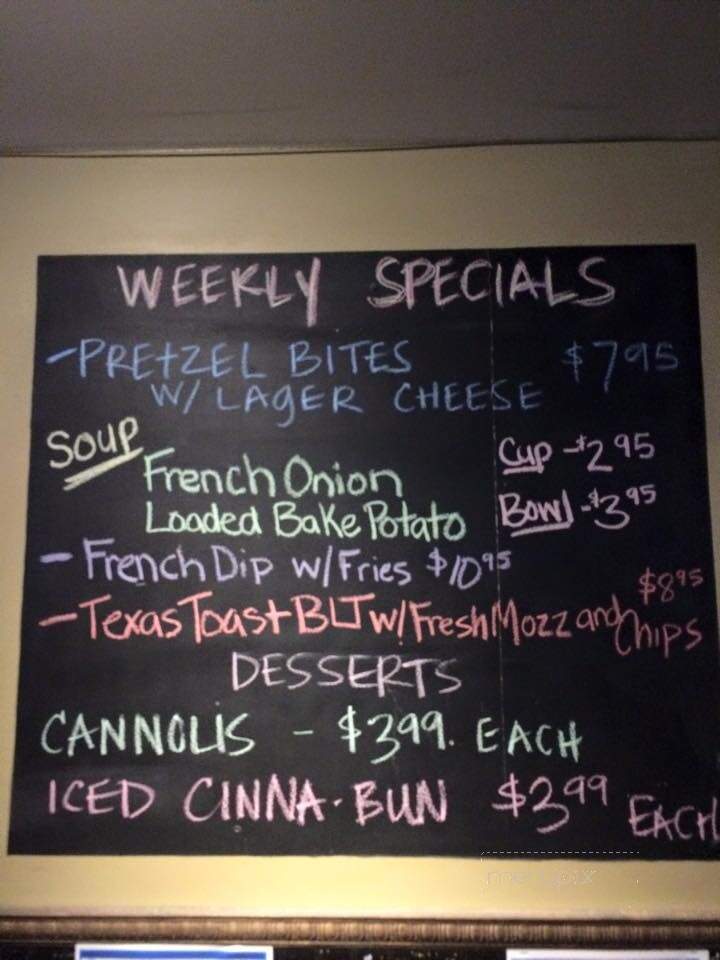 WEEKLY SPECIALS
-PRETZEL BITES $7.95
W/ LAGER CHEESE
Soup
French Onion Cup -$2.95
Loaded Bake Potato Bowl -$3.95
- French Dip w/Fries $10.95
$8.95
- Texas Toast BLT w/Fresh Mozz and Chips
DESSERTS
CANNOLIS - $3.99. EACH
ICED CINNA-BUN $3.99 EACH